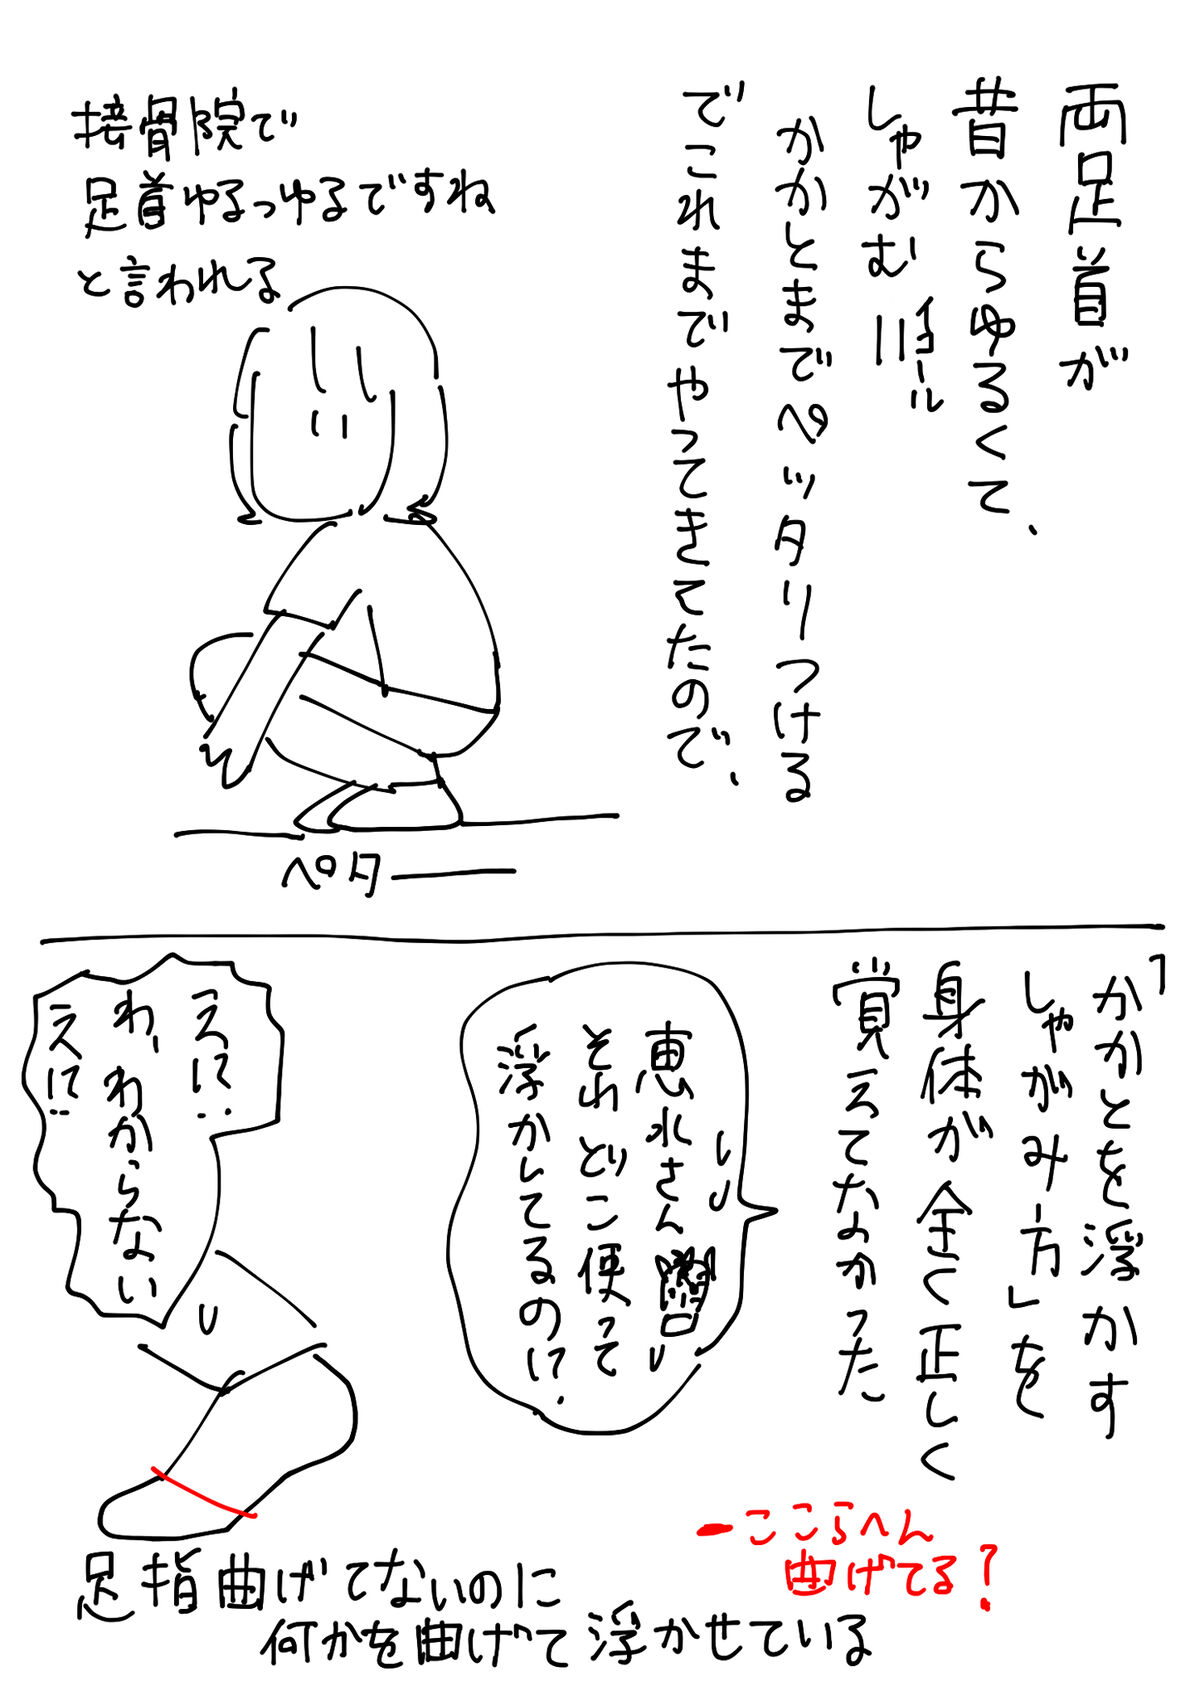 両足首が
昔からゆるくて、
しゃがむ〓イコール
かかとまでペッタリつける
でこれまでやってきてたので、
接骨院で
足首ゆるっゆるですね
と言われる
ペタ――
「かかとを浮かす
しゃがみ方」を
身体が全く正しく
覚えてなかった
恵水さん
それどこ使って
浮かしてるの!?
え!?
わ、わからない
え!?
ーここらへん
曲げてる?
足指曲げてないのに
何かを曲げて浮かせている